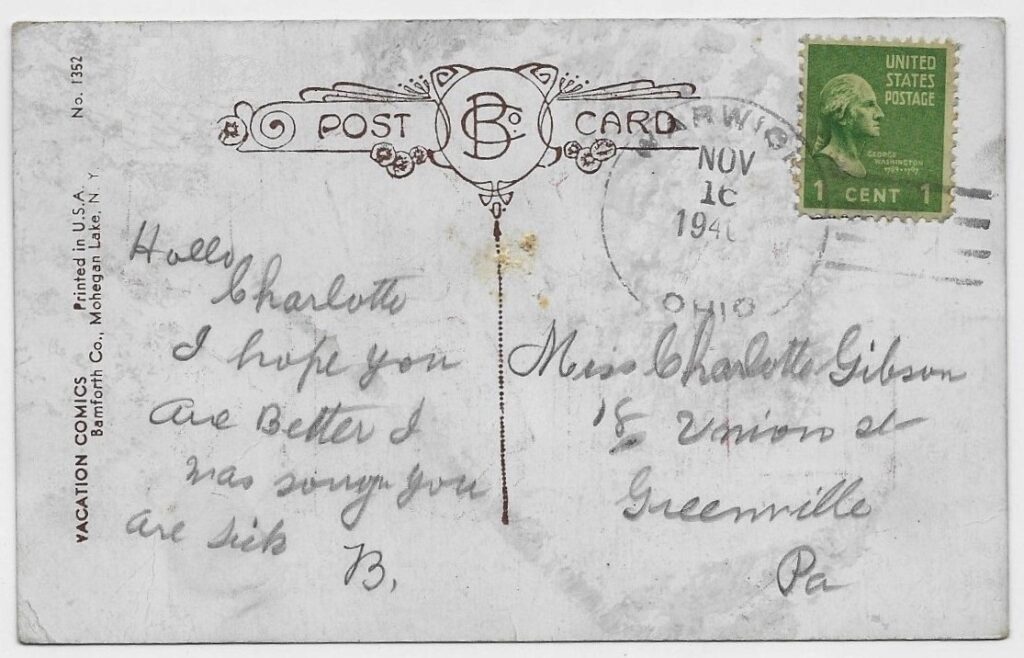 No. 1352
Printed in U.S.A.
VACATION COMICS
Bamforth Co., Mohegan Lake, N. Y.
POST BCo. CARD
WARWICK
NOV
16
194
OHIO
UNITED
STATES
POSTAGE
GEORGE
WASHINGTON
1789-1797
1 CENT 1
Hello
Charlotte
I hope you
are Better I
was sorry you
are sick
B.
Miss Charlotte Gibson
18 Union st
Greenville
Pa